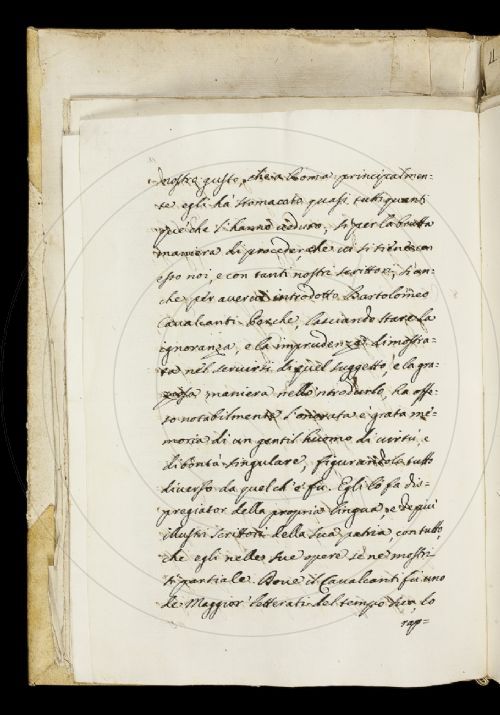 nostro gusto, che a Roma principalmen-
te egli hà stomacato quasi tutti quanti
què che l'hanno veduto, si per la brutta
maniera di proceder, che ivi si tiene con
esso noi, e con tanti nostri scrittori, si an-
che per avervi introdotto Bartolomeo
Cavalcanti. Perche, lasciando stare la
ignoranza, e la imprudenza dimostra-
ta nel servirsi di quel suggetto, e la
maniera nello 'ntrodurlo, ha offe-
so notabilmente l'onorata e grata me-
moria di un gentil huomo di virtù, e
di bontà singulare, figurandolo tutto
diverso da quel ch'e' fu. Egli lo fa dis-
pregiator della propria lingua, e de più
illustri scrittori della sua patria, con tutto,
che egli nelle sue opere se ne mostri-
si partiale. Dove il Cavalcanti fu uno
de Maggior' letterati del tempo suo, lo
rap=